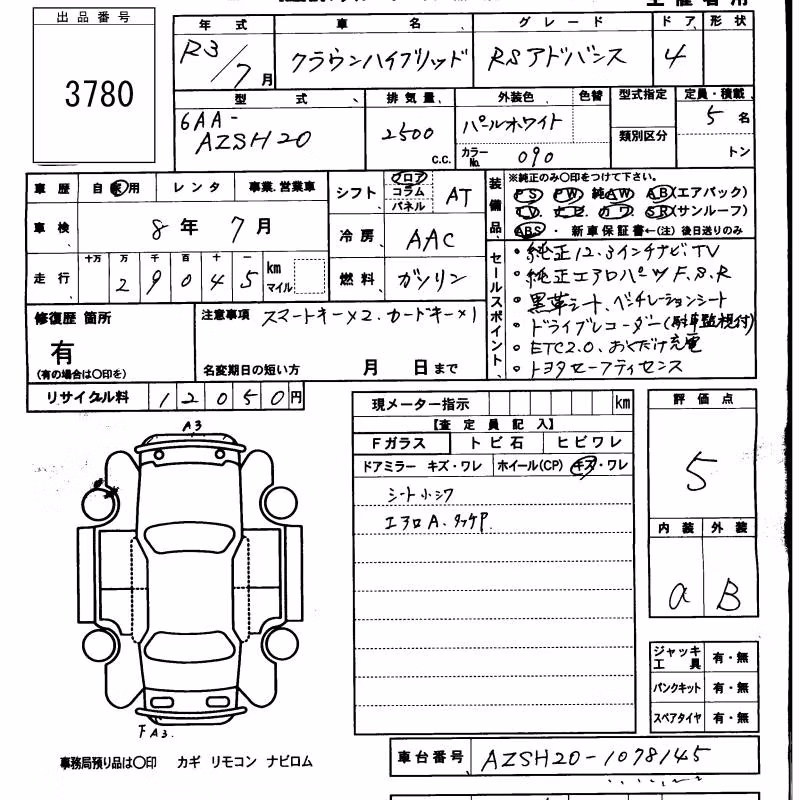 出品番号
3780
年式 車名 グレード ドア 形状
R3/7月 クラウンハイブリッド RSアドバンス 4
型式 排気量 外装色 色替 型式指定 定員・積載
6AA-AZSH20 2500 c.c. パールホワイト 5名
カラーNo. 090 類別区分 トン
車歴 自家用 レンタ 事業.営業車
シフト フロア コラム パネル AT
装備品 ※純正のみ○印をつけて下さい。
PS PW 純AW AB(エアバック)
TV ナビ カワ SR(サンルーフ)
ABS・新車保証書←(注)後日送りのみ
車検 8年7月
冷房 AAC
走行 十万 万 千 百 十 一
29045 km マイル
燃料 ガソリン
セールスポイント
・純正12.3インチナビ.TV
・純正エアロパーツF.S.R
・黒革シート、ベンチレーションシート
・ドライブレコーダー(駐車監視付)
・ETC2.0、おくだけ充電
・トヨタセーフティセンス
修復歴 箇所
有
(有の場合は○印を)
注意事項 スマートキー×2.カードキー×1
名変期日の短い方 月 日まで
リサイクル料 12050円
現メーター指示 km
【査定員記入】
Fガラス トビ石 ヒビワレ
ドアミラー キズ・ワレ ホイール(CP) キズ・ワレ
シート小シワ
エアロA.タッチP.
評価点
5
内装 外装
a B
A3
FA3.
ジャッキ工具 有・無
パンクキット 有・無
スペアタイヤ 有・無
事務局預り品は○印 カギ リモコン ナビロム
車台番号 AZSH20-1078145